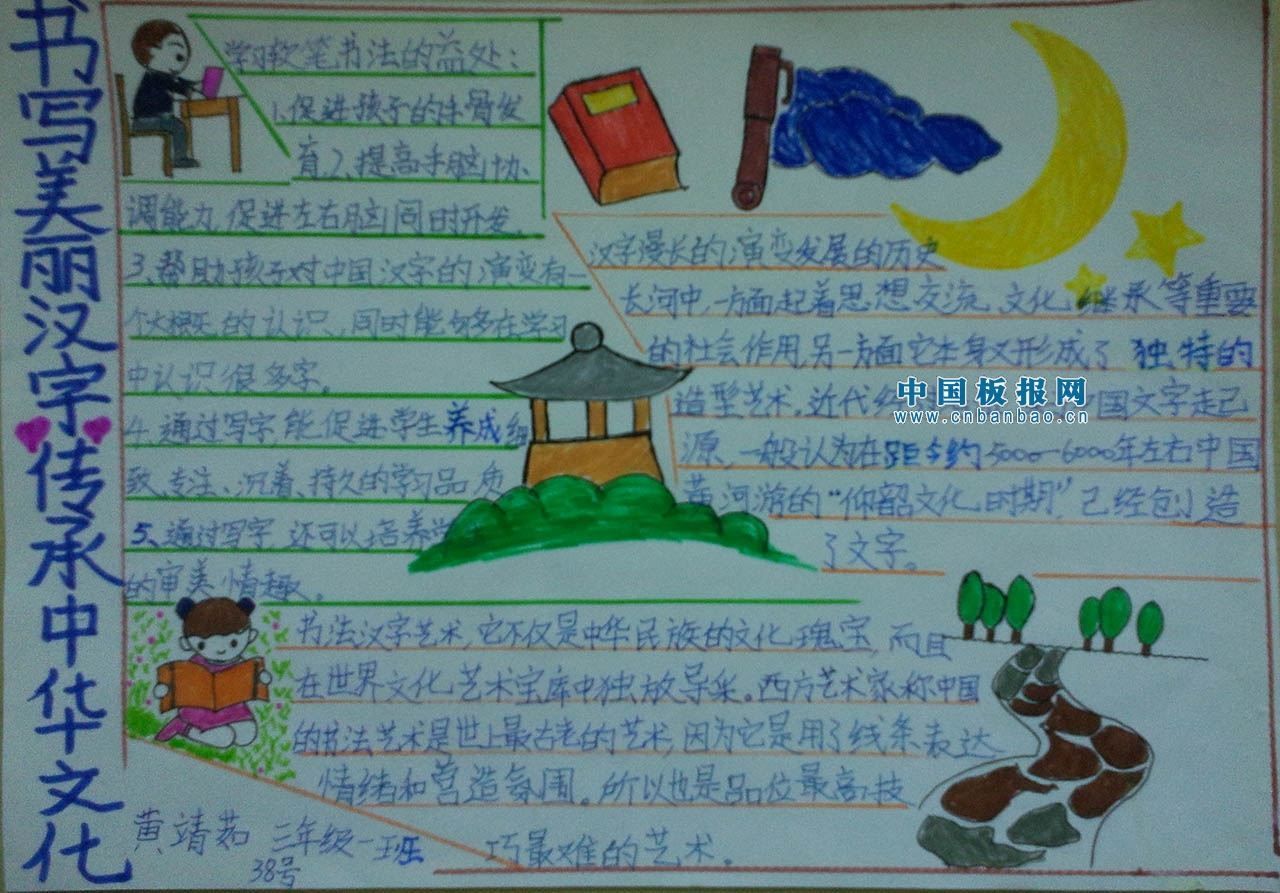 书写美丽汉字传承中华文化
学习软笔书法的益处：
1.促进孩子的手骨发
育2、提高手脑协
调能力,促进左右脑同时开发。
3、帮助孩子对中国汉字的演变有一
个大概的认识、同时能够多在学习
中认识很多字。
4、通过写字,能促进学生养成细
致、专注、沉着、持久的学习品质
5、通过写字,还可以培养学
的审美情趣。
汉字漫长的演变发展的历史
长河中,一方面起着思想交流、文化继承等重要
的社会作用,另一方面它本身又形成了独特的
造型艺术,近代 国文字走己
源,一般认为在距今约5000-6000年左右中国
黄河游的“仰韶文化时期”,己经创造
了文字。
中国板报网
www.cnbanbao.cn
书法汉字艺术,它不仅是中华民族的文化瑰宝,而且
在世界文化艺术宝库中独放导采。西方艺术家称中国
的书法艺术是世上最古老的艺术,因为它是用了线条表达
情绪和营造氛围。所以也是品位最高技
巧最难的艺术。
黄靖茹 三年级一班
38号